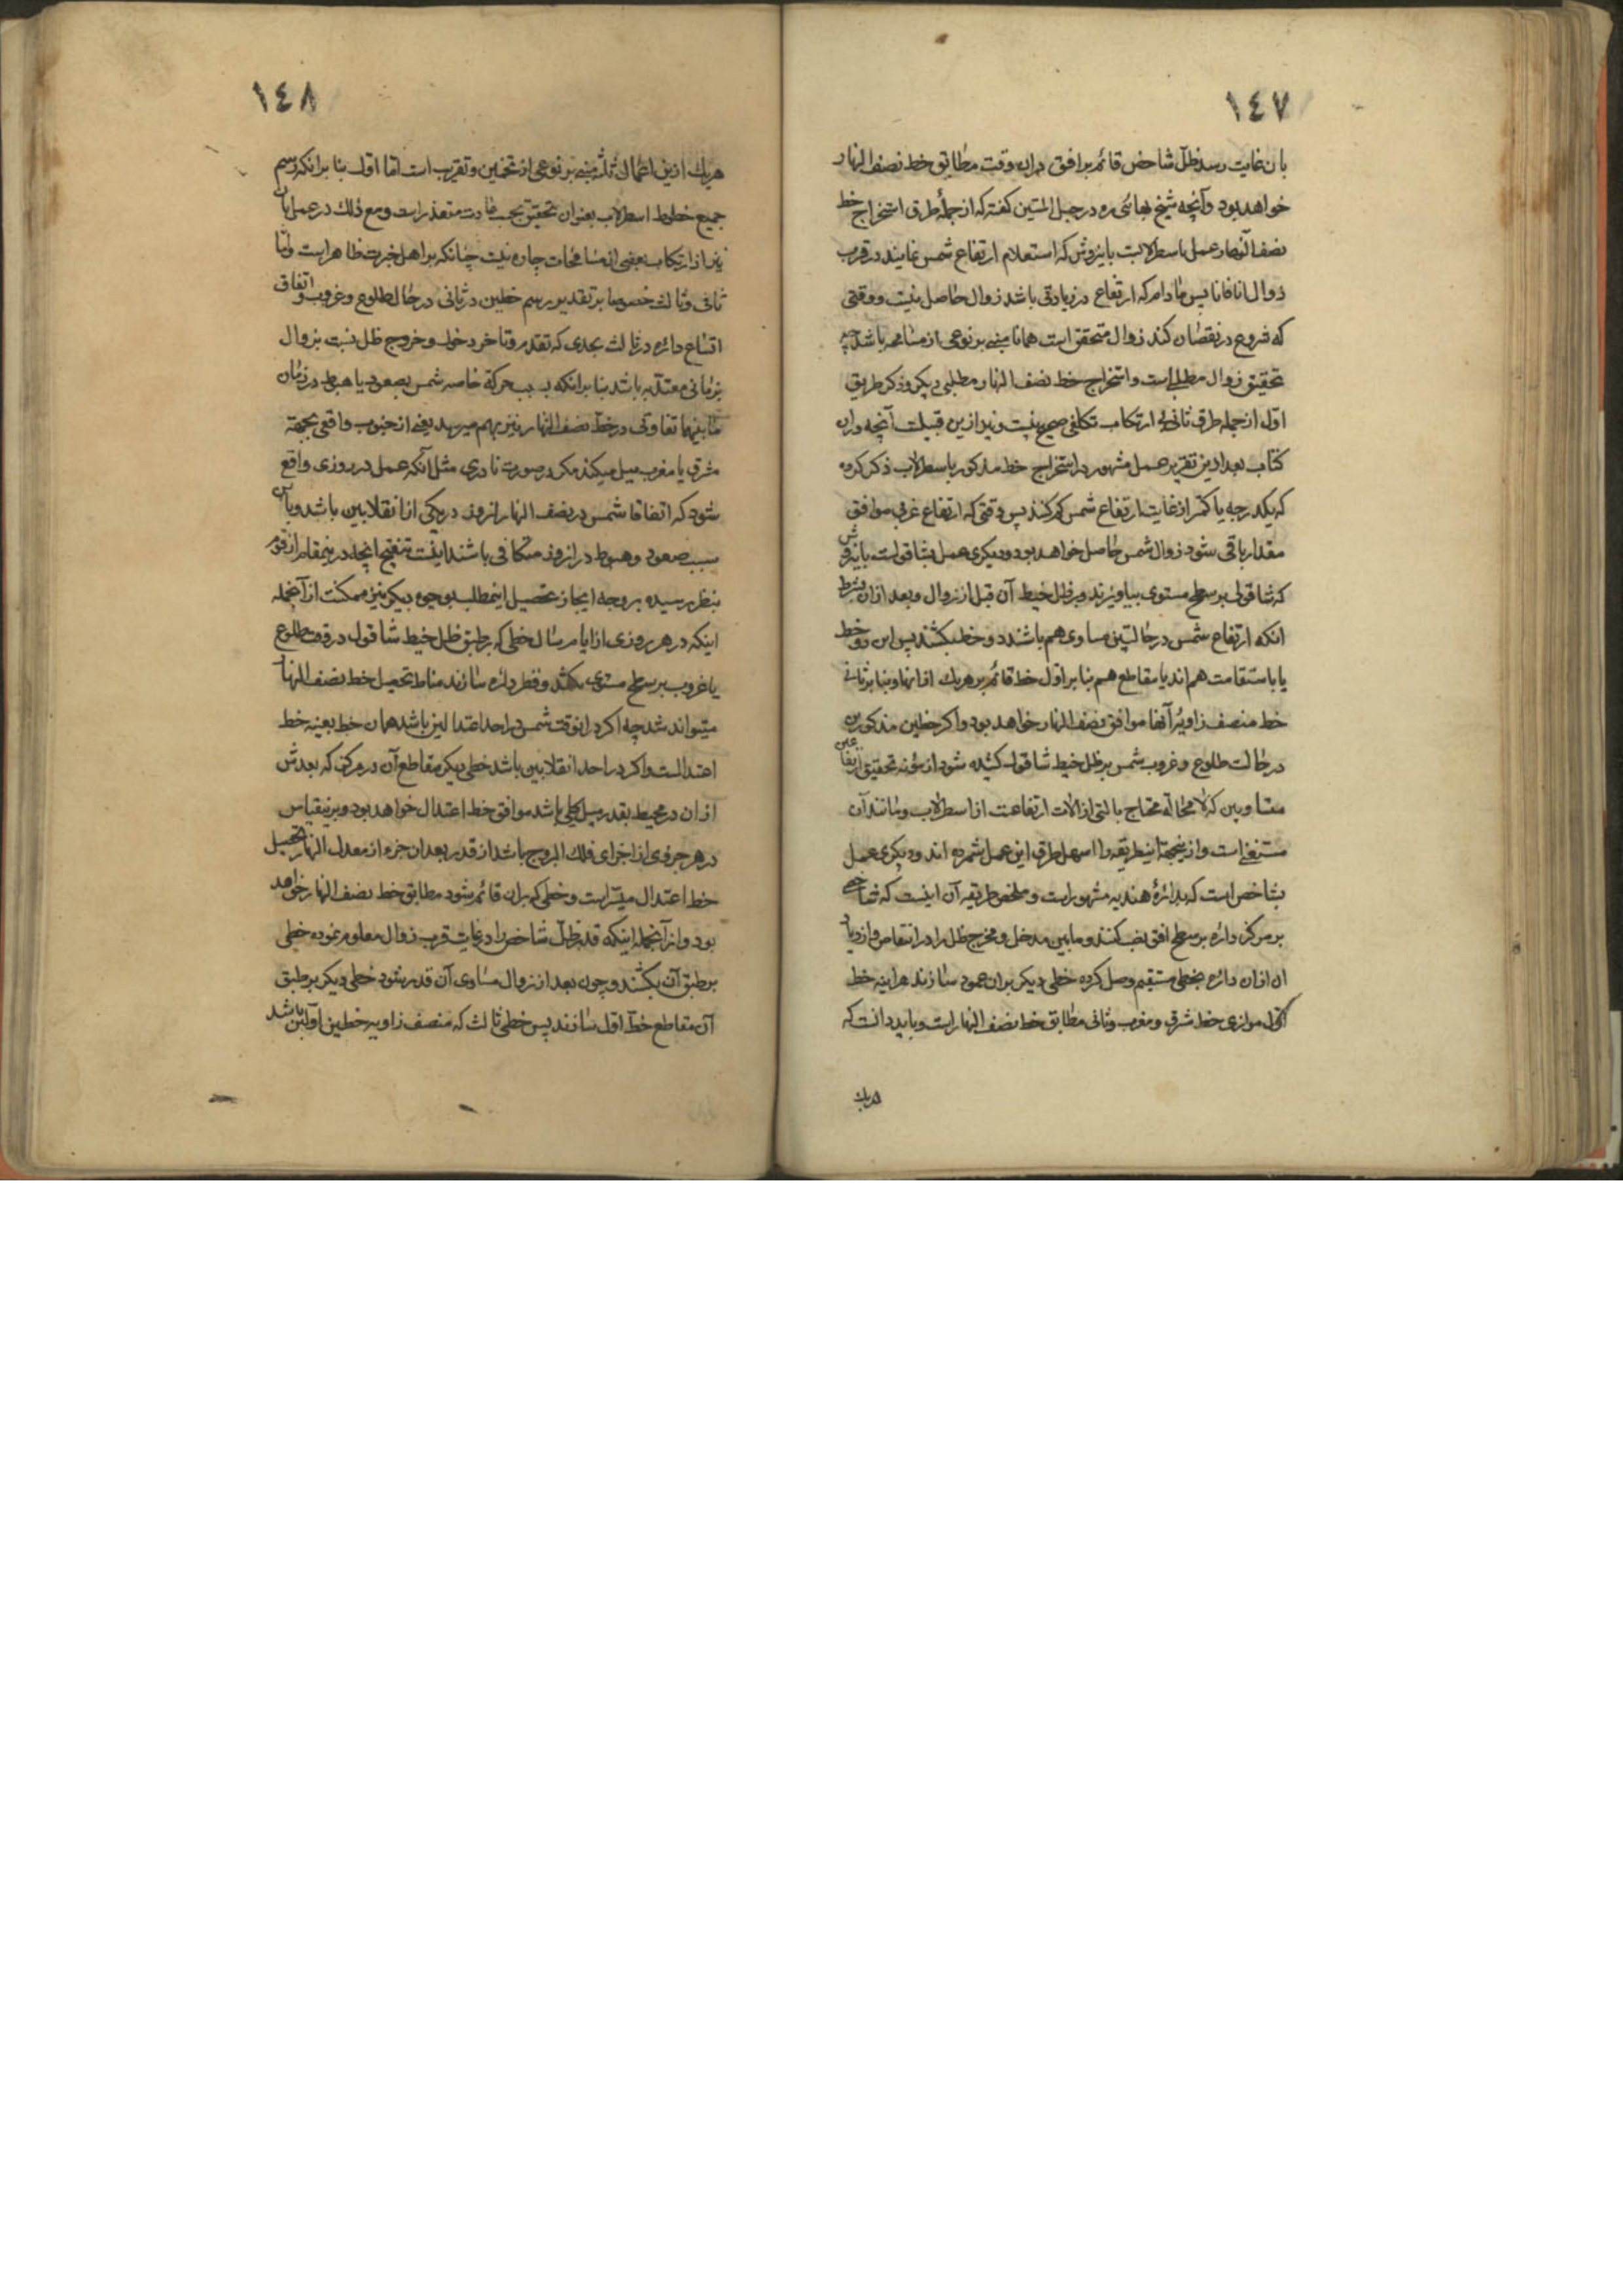 ١٤٧
بان غایت رسد ظلّ شاخص قائم بر افق دران وقت مطابق خط نصف النهار
خواهد بود و آنچه شیخ بهائی ره در حبل المتین گفته که از جملهٔ طرق استخراج خط
نصف النهار عمل باسطرلابست باینروش که استعلام ارتفاع شمس نمایند در قرب
زوال انا فانا پس مادام که ارتفاع در زیادتی باشد زوال حاصل نیست و وقتی
که شروع در نقصان کند زوال متحقق است همانا مبنی بر نوعی از مسامحه باشد چه
تحقیق زوال مطلبی است و استخراج خط نصف النهار مطلبی دیگر و ذکر طریق
اول از جمله طرق ثانی بی ارتکاب تکلفی صحیح نیست و نیز ازین قبیلست آنچه دران
کتاب بعد ازین تقریر عمل مشهور در استخراج خط مذکور باسطرلاب ذکر کرده
که یکدرجه یا کمتر از غایت ارتفاع شمس کم کنند پس وقتی که ارتفاع غربی موافق
مقدار باقی شود زوال شمس حاصل خواهد بود و دیگری عمل بشاقولست باینروش
که شاقولی بر سطح مستوی بیاویزند و بر ظل خیط آن قبل از زوال و بعد ازان بشرط
انکه ارتفاع شمس در حالتین مساوی هم باشند دو خط بکشند پس این دو خط
یا باستقامت هم اند یا مقاطع هم بنا بر اول خط قائم بر هریک ازانها و بنا بر ثانی
خط منصف زاویهٔ آنها موافق نصف النهار خواهد بود و اگر خطین مذکورین
در حالت طلوع و غروب شمس بر ظل خیط شاقول کشیده شود از مؤنه تحقیق ارتفاعین
متساویین که لا محاله محتاج بالتی از الات ارتفاعست از اسطرلاب و مانند آن
مستغنی است و ازینجهة اینطریقه را اسهل طرق این عمل شمرده اند و دیگری عمل
بشاخص است که بدائرهٔ هندیه مشهور است و ملخص طریقه آن اینست که شاخصی
بر مرکز دائره بر سطح افق نصب کنند و مابین مدخل و مخرج ظل را در انتقاص و ازدیاد
ان ازان دائره بخطی مستقیم وصل کرده خطی دیگر بران عمود سازند هراینه خط
اول موازی خط شرق و مغرب و ثانی مطابق خط نصف النهار است و باید دانست که
هریک
١٤٨
هریک ازین اعمال ثلثه مبنی بر نوعی از تخمین و تقریب است اما اول بنا برانکه رسم
جمیع خطوط اسطرلاب بعنوان تحقیق بحسب عادت متعذر است و مع ذلک در عمل بان
نیز از ارتکاب بعضی از مسامحات چاره نیست چنانکه بر اهل خبرت ظاهر است و اما
ثانی و ثالث خصوصا بر تقدیر رسم خطین در ثانی در حال طلوع و غروب و اتفاق
اتساع دائره در ثالث بحدی که تقدم و تاخر دخول و خروج ظل نسبت بزوال
بزمانی معتدّ به باشد بنا برانکه بسبب حرکة خاصه شمس بصعود یا هبوط در زمان
مابینهما تفاوتی در خط نصف النهار نیز بهم میرسد یعنی از جنوب واقعی بجهة
مشرق یا مغرب میل میکند مگر در صورت نادری مثل آنکه عمل در روزی واقع
شود که اتفاقا شمس در نصف النهار انروز در یکی از انقلابین باشد و باین
سبب صعود و هبوط در انروز متکافی باشند اینست تنقیح انچه درینمقام از قوم
بنظر رسیده بر وجه ایجاز تحصیل اینمطلب بوجوه دیگر نیز ممکنست از آنجمله
اینکه در هر روزی از ایام سال خطی که بر طبق ظل خیط شاقول در وقت طلوع
یا غروب بر سطح مستوی بکشند و قطر دائره سازند مناط تحصیل خط نصف النهار
میتواند شد چه اگر در انوقت شمس در احد اعتدالین باشد همان خط بعینه خط
اعتدالست و اگر در احد انقلابین باشد خطی دیگر مقاطع آن در مرکز که بعدش
ازان در محیط بقدر میل کلی باشد موافق خط اعتدال خواهد بود و برینقیاس
در هر جزوی از اجزای فلک البروج باشد از قدر بعد ان جزء از معدل النهار تحصیل
خط اعتدال میسّر است و خطی که بران قائم شود مطابق خط نصف النهار خواهد
بود و از آنجمله اینکه قدر ظلّ شاخص را در غایت قرب زوال معلوم نموده خطی
بر طبق آن بکشند و چون بعد از زوال مساوی آن قدر شود خطی دیگر بر طبق
آن مقاطع خط اول سازند پس خطی ثالث که منصف زاویه خطین اولین باشد